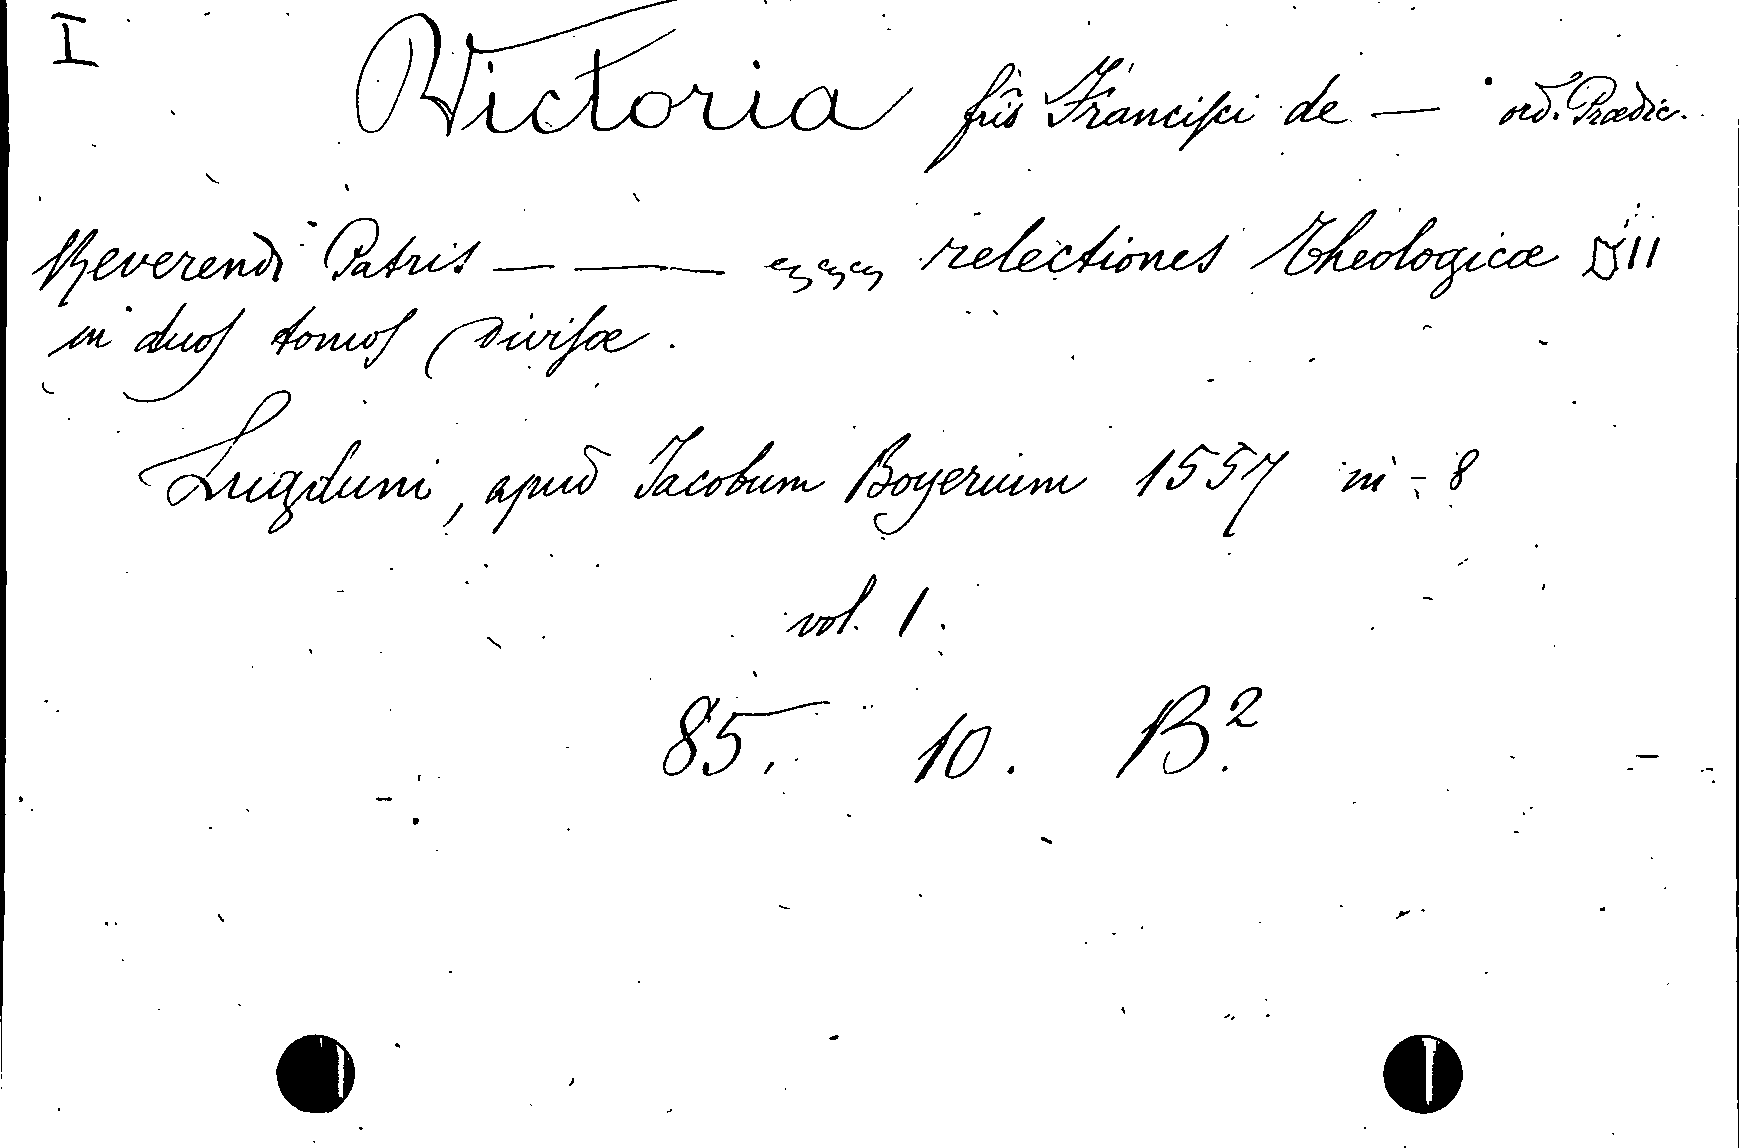 I
Victoria frīs Franciſci de — ord. Prædic.
Reverendi Patris — — relectiones theologicæ XII
in duoſ tomoſ diviſæ.
Lugduni, apud Jacobum Boyerium 1557 in-8
vol. 1.
85. 10. B².